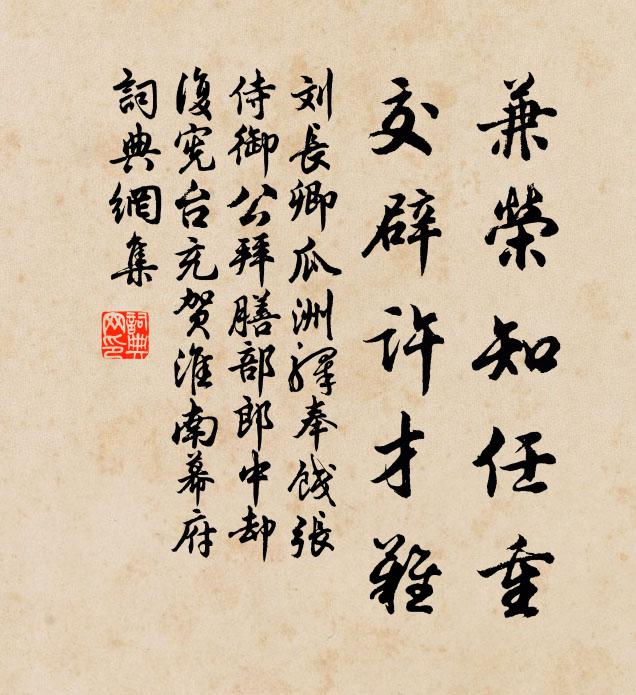 兼榮知任重
交辟許才難
刘長卿瓜洲驛奉餞張
侍御公拜膳部郎中却
復宪台充贺淮南幕府
詞典網集
詞典
网印